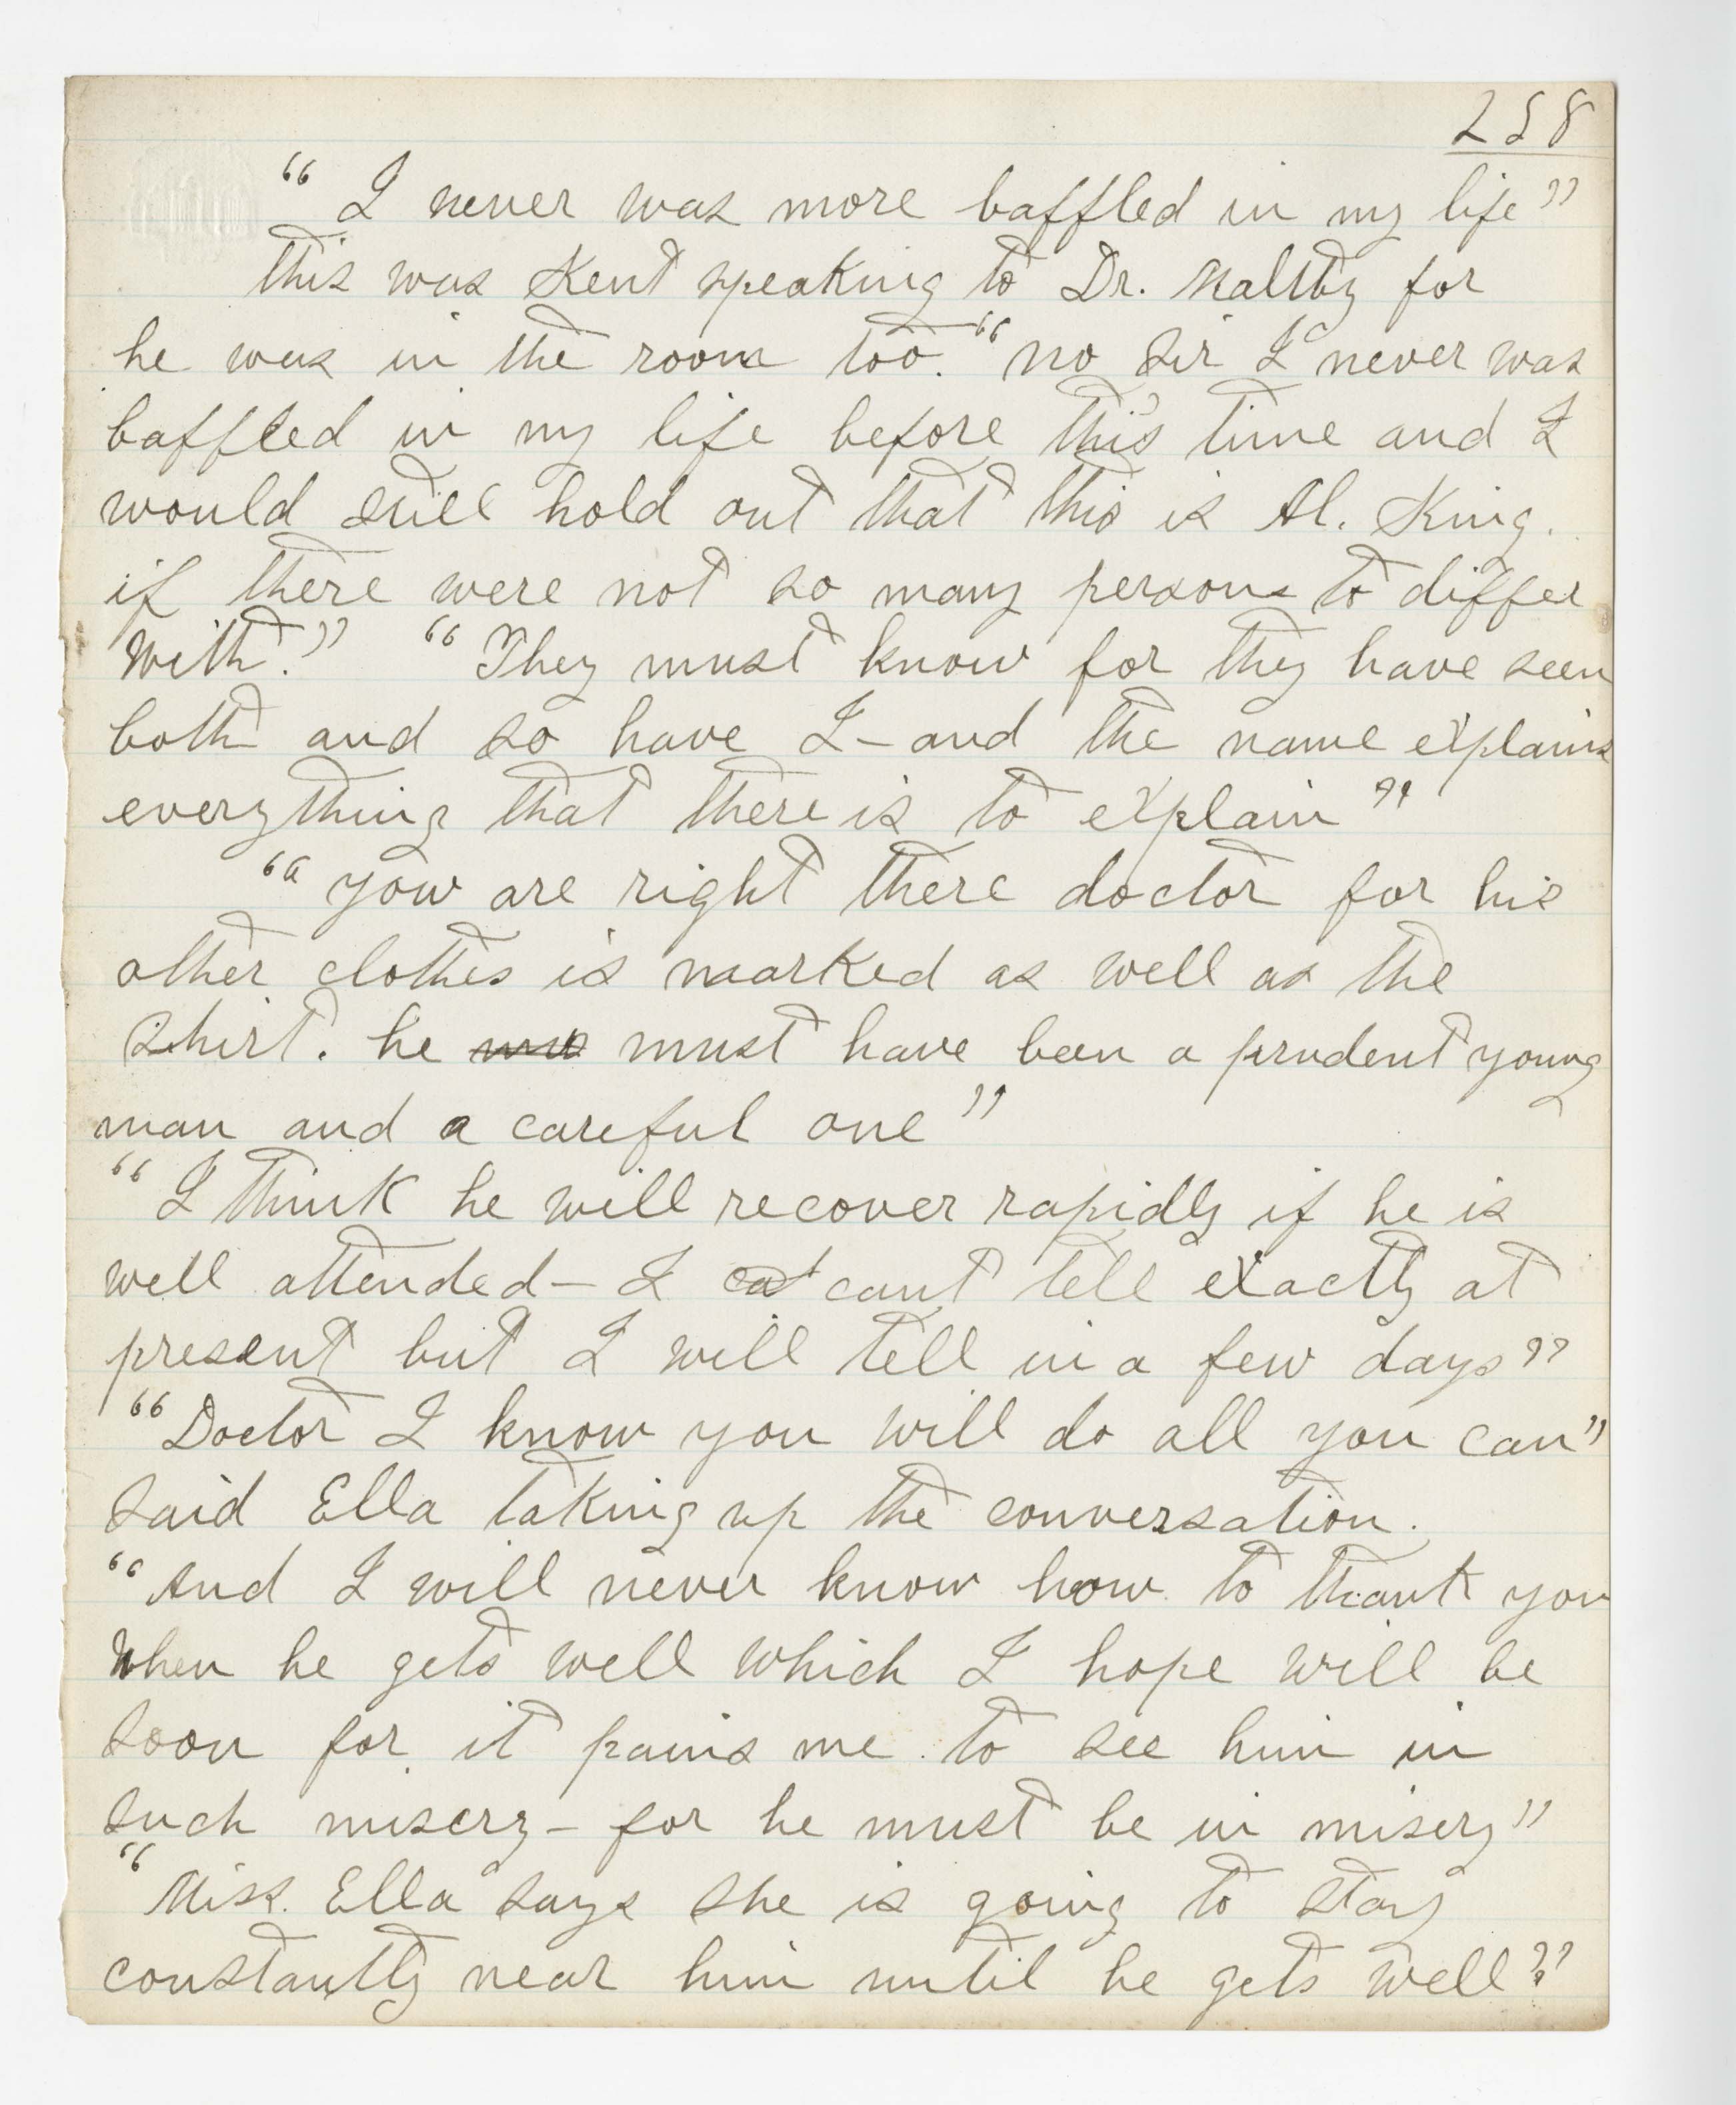 258
“ I never was more baffled in my life”
this was Kent speaking to Dr. Maltby for
he was in the room too. “no Sir I never was
baffled in my life before this time and I
would still hold out that this is Al. King.
if there were not so many persons to differ
with.” “They must know for they have seen
both and so have I – and the name explains
everything that there is to explain”
“ you are right there doctor for his
other clothes is marked as well as the
Shirt. he mu must have been a prudent young
man and a careful one”
“ I think he will recover rapidly if he is
well attended – I cat cant tell exactly at
present but I will tell in a few days”
“ Doctor I know you will do all you can”
Said Ella taking up the conversation.
“ And I will never know how to thank you
When he gets well which I hope will be
Soon for it pains me to see him in
Such misery – for he must be in misery”
“ Miss. Ella says She is going to Stay
constantly near him until he gets well?”